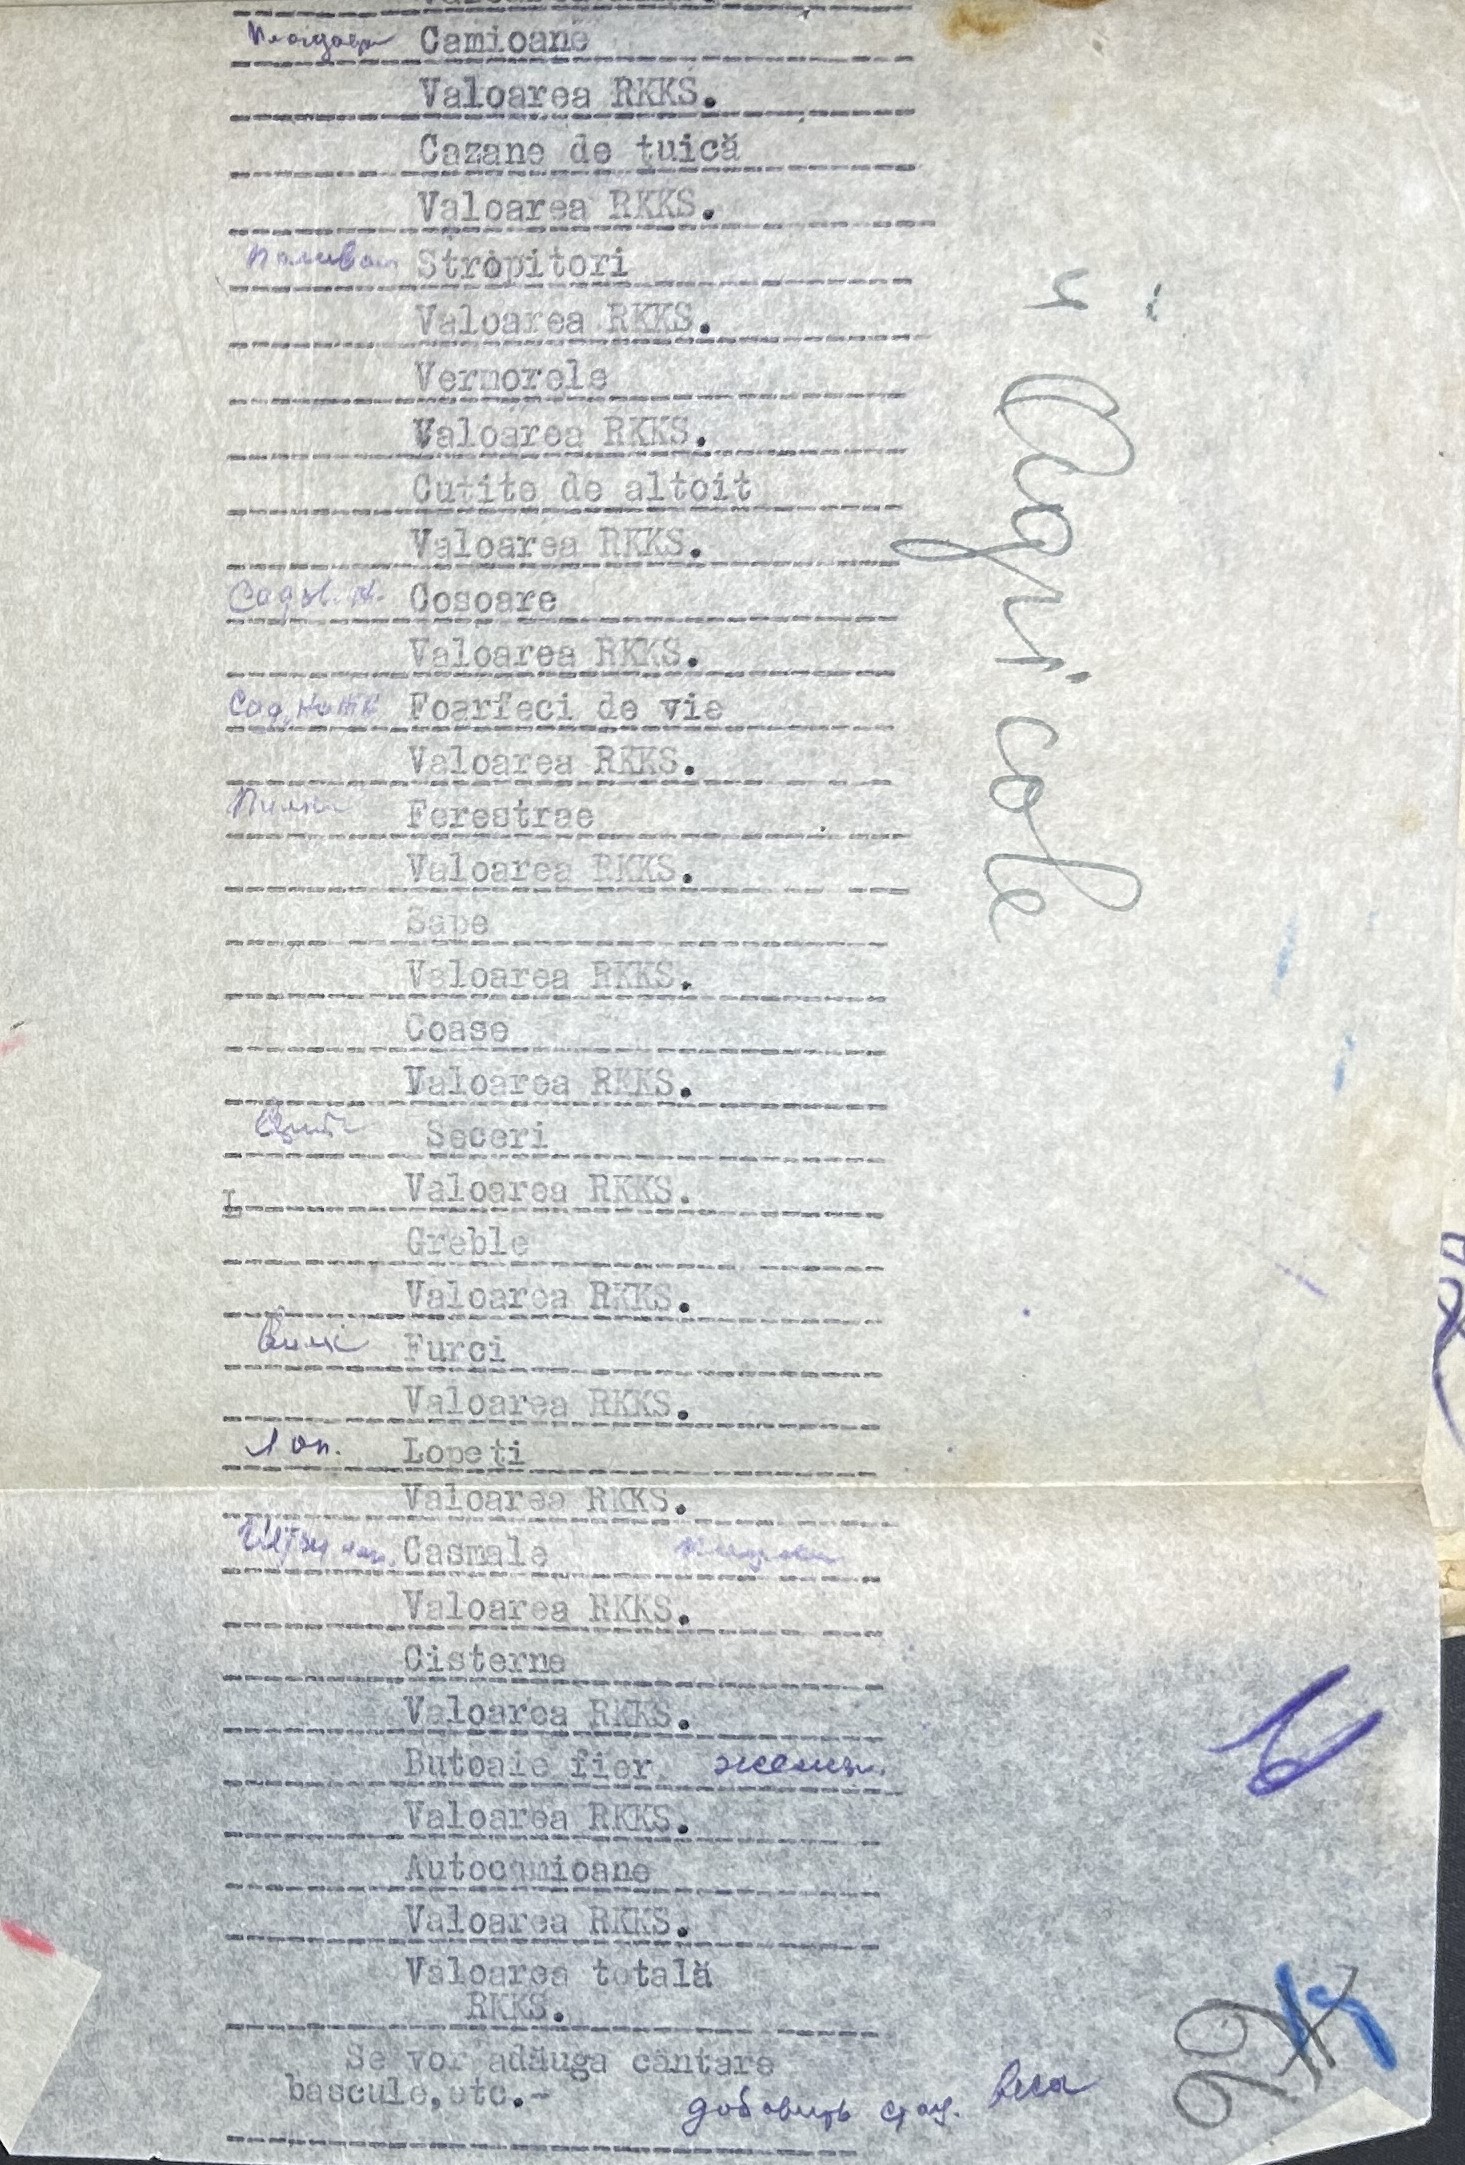 Camioane
Valoarea RKKS.
Cazane de ţuică
Valoarea RKKS.
Stropitori
Valoarea RKKS.
Vermorele
Valoarea RKKS.
Cutite de altoit
Valoarea RKKS.
Cosoare
Valoarea RKKS.
Foarfeci de vie
Valoarea RKKS.
Ferestrae
Valoarea RKKS.
Sape
Valoarea RKKS.
Coase
Valoarea RKKS.
Seceri
Valoarea RKKS.
Greble
Valoarea RKKS.
Furci
Valoarea RKKS.
Лоп. Lopeţi
Valoarea RKKS.
Casmale
Valoarea RKKS.
Cisterne
Valoarea RKKS.
Butoaie fier
Valoarea RKKS.
Autocamioane
Valoarea RKKS.
Valoarea totală
RKKS.
Se vor adăuga cântare
bascule,etc.-
добавить весы
Agricole